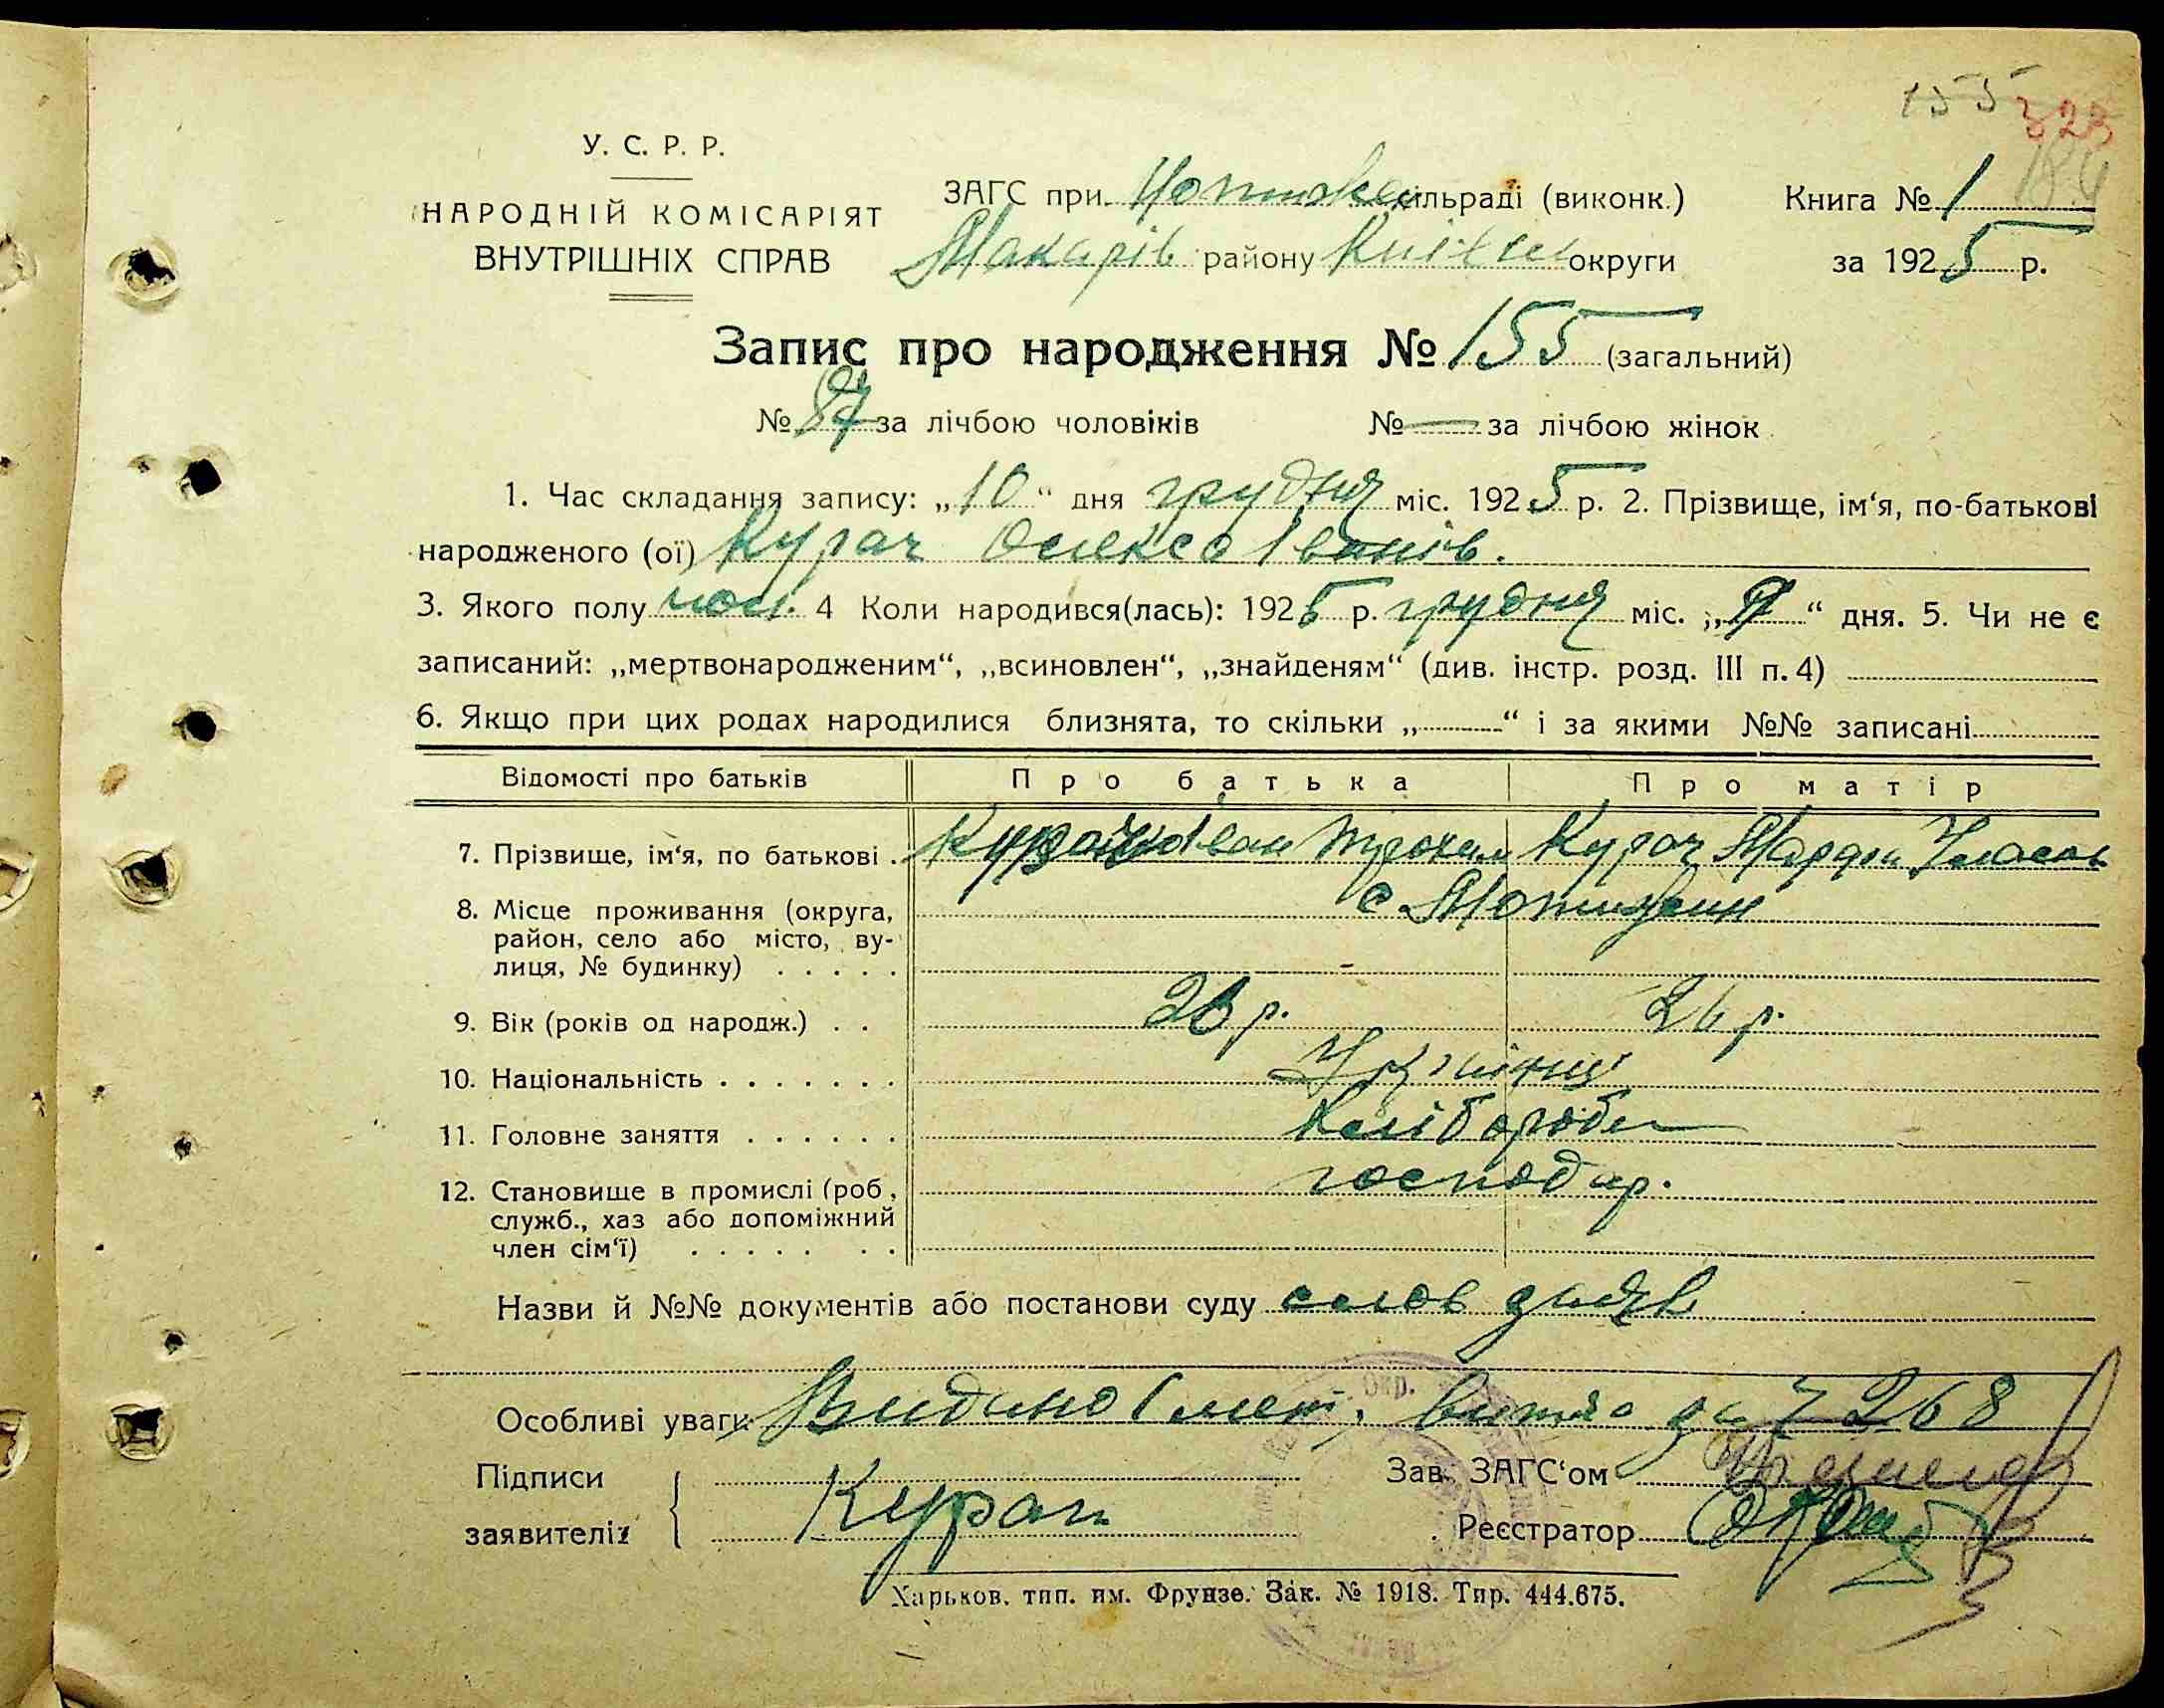 155
323
У. С. Р. Р.
НАРОДНІЙ КОМІСАРІЯТ
ВНУТРІШНІХ СПРАВ
ЗАГС при сільраді (виконк.)
Макарів району Київськ округи
Книга № 1
за 1925 р.
Запис про народження № 155 (загальний)
№ 87 за лічбою чоловіків № — за лічбою жінок
1. Час складання запису: „10“ дня грудня міс. 1925 р. 2. Прізвище, ім‘я, по-батькові
народженого (ої) Курач Олекса Іванів.
3. Якого полу чол. 4 Коли народився(лась): 1925 р. грудня міс. „ “ дня. 5. Чи не є
записаний: „мертвонародженим“, „всиновлен“, „знайденям“ (див. інстр. розд. III п. 4)
6. Якщо при цих родах народилися близнята, то скільки „ “ і за якими №№ записані
Відомості про батьків Про батька Про матір
7. Прізвище, ім‘я, по батькові . Курач Іван Трохим Курач Марфа
8. Місце проживання (округа,
район, село або місто, ву-
лиця, № будинку) . . . . .
с Мотижин
9. Вік (років од народж.) . . 26 р. 26 р.
10. Національність . . . . . . . Українці
11. Головне заняття . . . . . . Хлібороби
12. Становище в промислі (роб,
служб., хаз або допоміжний
член сім‘ї) . . . . . . .
господар.
Назви й №№ документів або постанови суду слов заяв
Особливі уваги Видано витяг за 7268
Підписи
заявителів
Курач
Зав. ЗАГС‘ом
Реєстратор
Харьков. тип. им. Фрунзе. Зак. № 1918. Тир. 444.675.